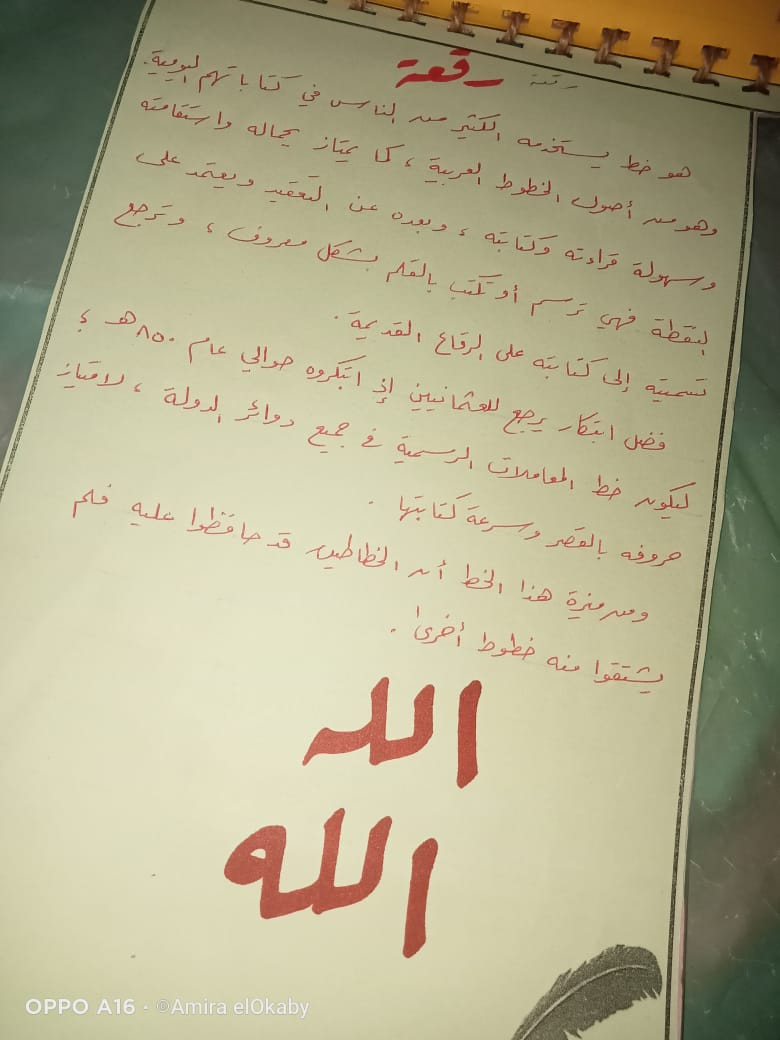 رقعة رقعة
هو خط يستخدمه الكثير من الناس في كتاباتهم اليومية.
وهو من أصول الخطوط العربية ، كما يمتاز بجماله واستقامته
وسهولة قراءته وكتابته ، وبعده عن التعقيد ويعتمد على
النقطة فهي ترسم أو تكتب بالقلم بشكل معروف ، وترجع
تسميته إلى كتابته على الرقاع القديمة .
فضل ابتكار يرجع للعثمانيين إذ ابتكروه حوالي عام ٨٥٠ هـ ؛
ليكون خط المعاملات الرسمية في جميع دوائر الدولة ، لامتياز
حروفه بالقصر وسرعة كتابتها .
ومن ميزة هذا الخط أن الخطاطين قد حافظوا عليه فلم
يشتقوا منه خطوط أخرى .
الله
الله
OPPO A16 · ©Amira elOkaby